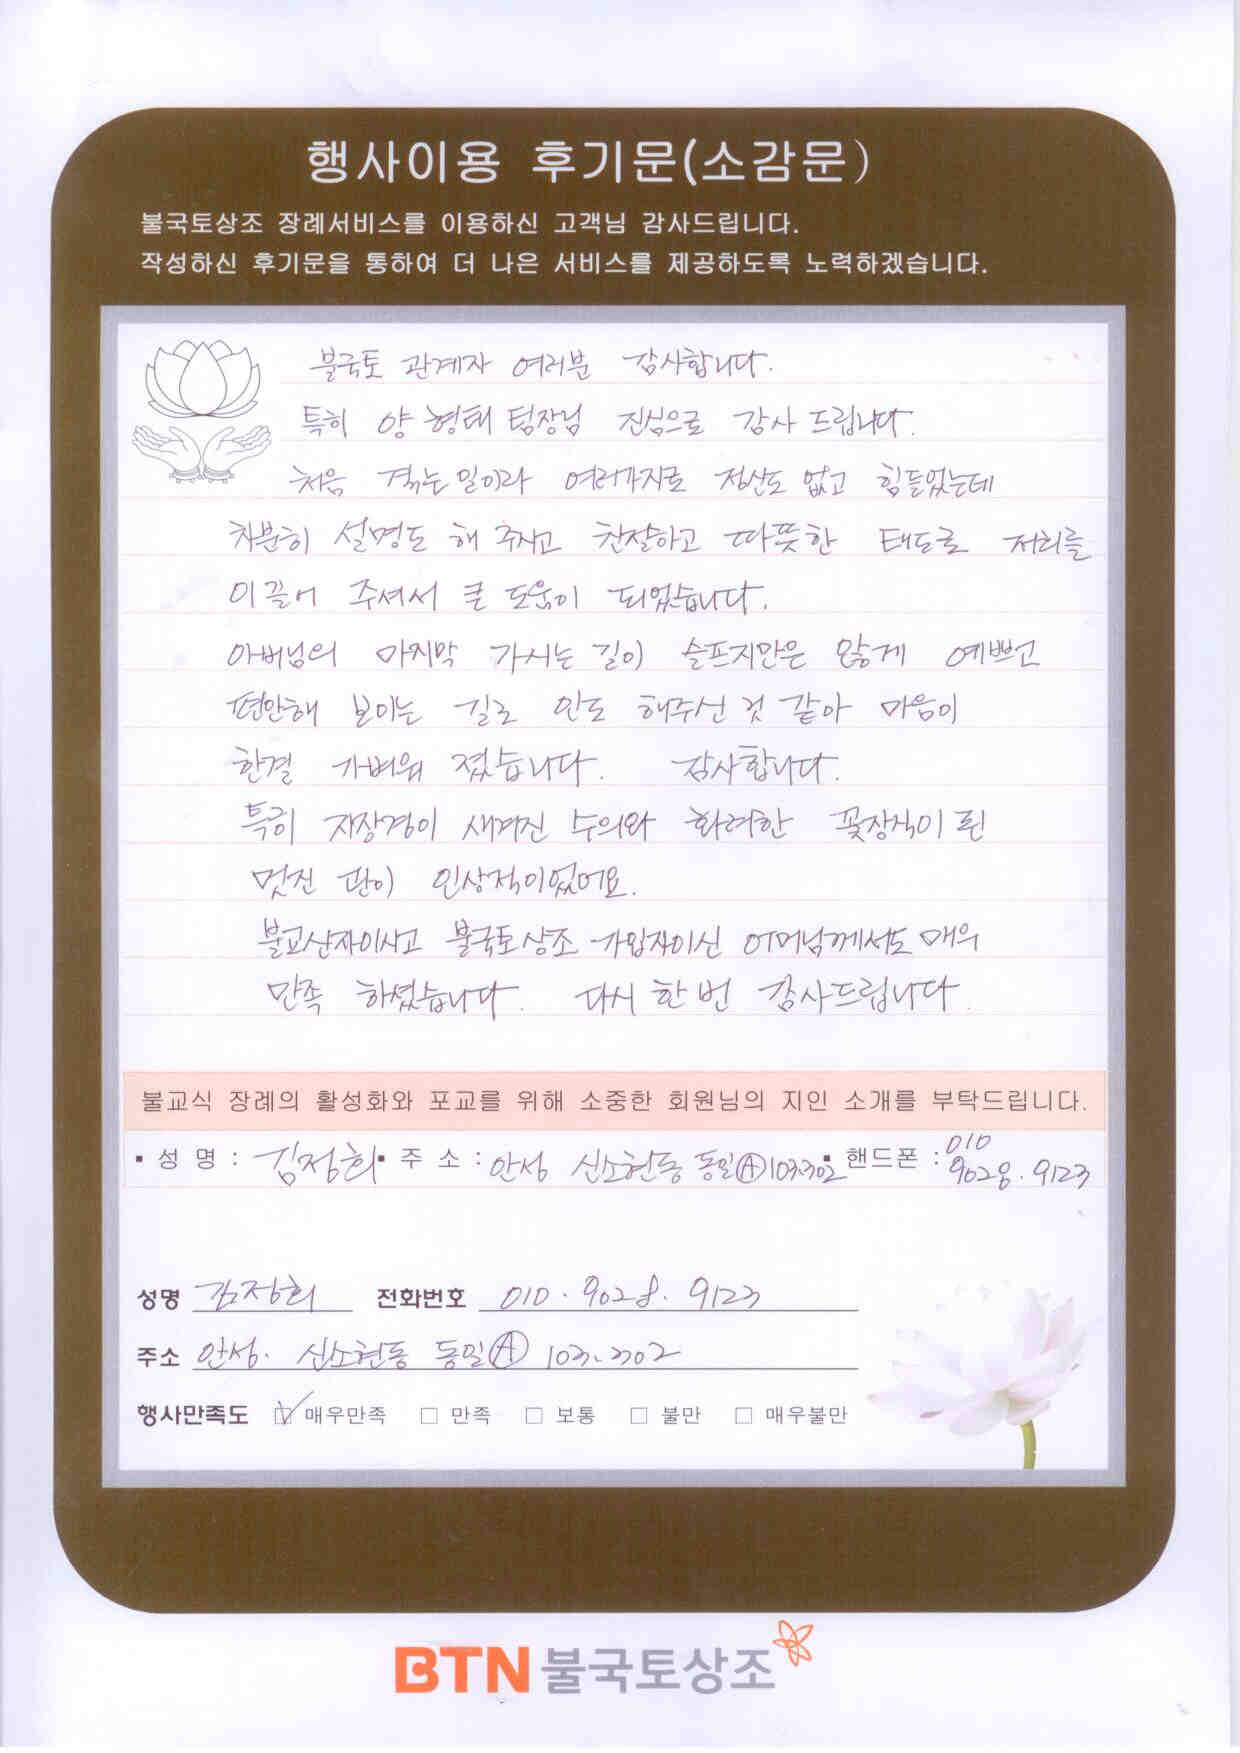 행사이용 후기문(소감문)
불국토상조 장례서비스를 이용하신 고객님 감사드립니다.
작성하신 후기문을 통하여 더 나은 서비스를 제공하도록 노력하겠습니다.
불국토 관계자 여러분 감사합니다.
특히 양형태 팀장님 진심으로 감사드립니다.
처음 겪는일이라 여러가지로 정신도 없고 힘들었는데
차분히 설명도 해 주시고 친절하고 따뜻한 태도로 저희를
이끌어 주셔서 큰 도움이 되었습니다.
아버님의 마지막 가시는 길이 슬프지만은 않게 예쁘고
편안해 보이는 길로 인도 해주신 것 같아 마음이
한결 가벼워 졌습니다. 감사합니다.
특히 지장경이 새겨진 수의와 화려한 꽃장식이 된
멋진 관이 인상적이었어요.
불교신자이시고 불국토상조 가입자이신 어머님께서도 매우
만족 하셨습니다. 다시 한번 감사드립니다.
불교식 장례의 활성화와 포교를 위해 소중한 회원님의 지인 소개를 부탁드립니다.
▪ 성 명 : 김정희 ▪ 주 소 : 안성 신소현동 동일Ⓐ103.302 ▪ 핸드폰 : 010 9028.9123
성명 김정희 전화번호 010.9028.9123
주소 안성. 신소현동 동일Ⓐ 103.302
행사만족도 ☑ 매우만족 □ 만족 □ 보통 □ 불만 □ 매우불만
BTN 불국토상조